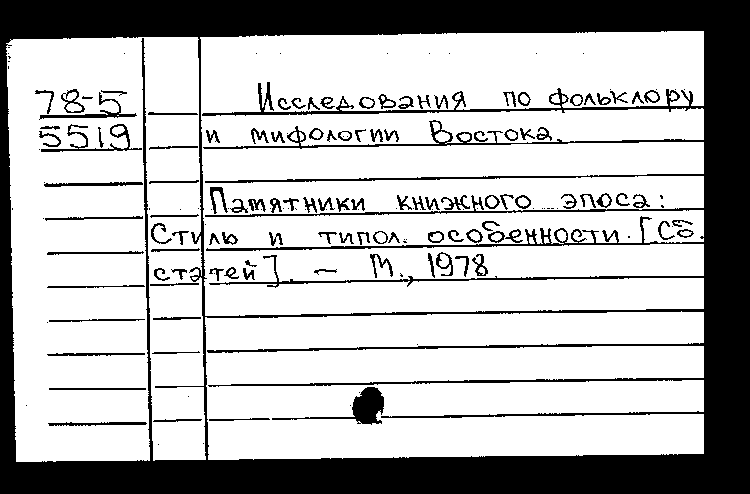 78-5 Исследования по фольклору
5519 и мифологии Востока.
Памятники книжного эпоса:
Стиль и типол. особенности. [Сб.
статей]. - М., 1978